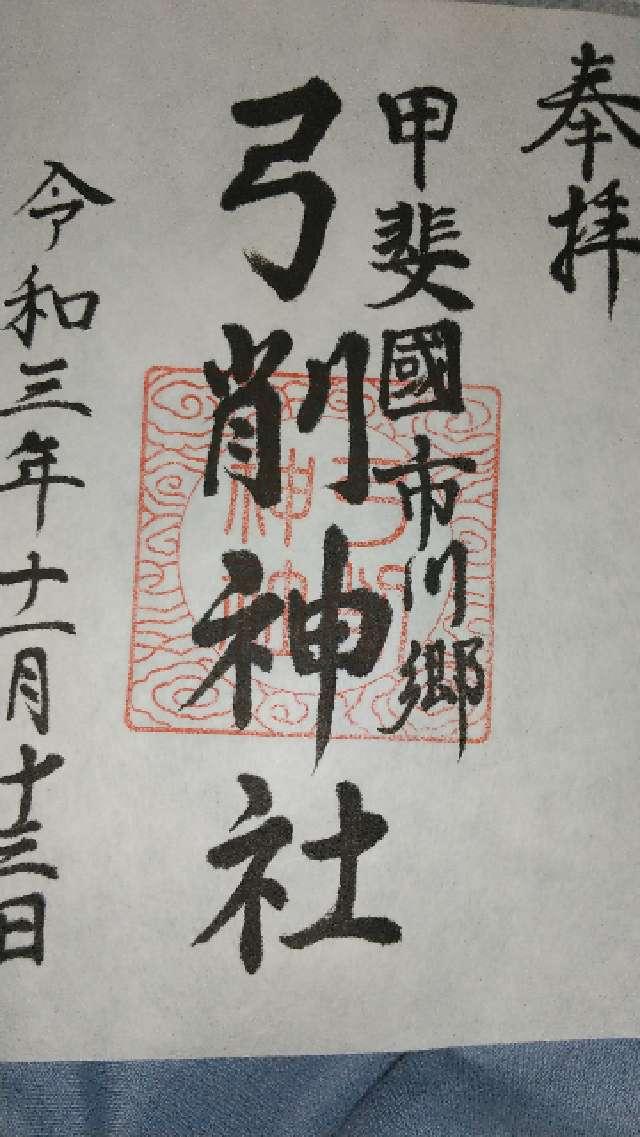 奉拝
甲斐國市川郷
弓削神社
弓削
神社
令和三年十一月十三日